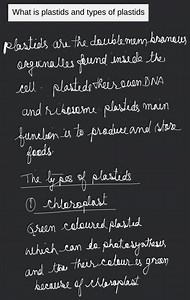 What is plastids and types of plastids
plastids are the doublemembranous
organnalles found inside the
cell. plasteds theer own DNA
and ribosome plasteds main
function is to produce and store
foods.
The types of plasteds
① chloroplast
Green coloured plastid
which can do photosynthesis
and their colour is green
because of chloroplast